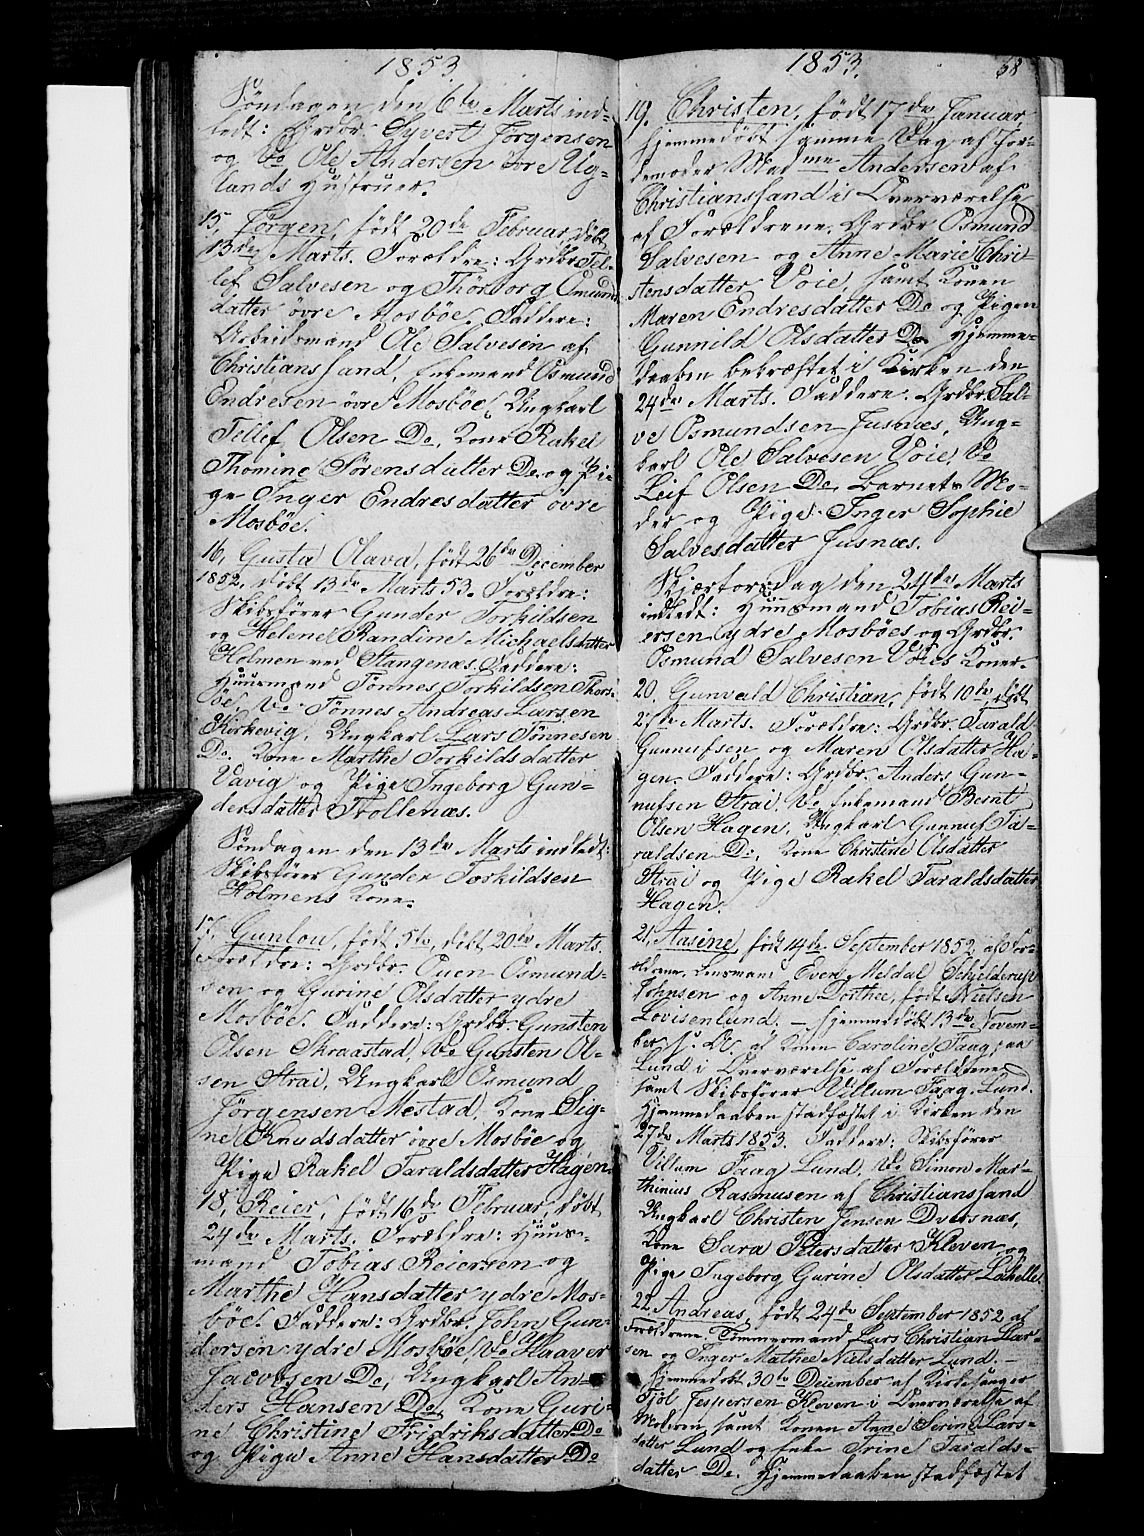 1853
Søndagen den 6te Marts ind-
ledt: Grdbr. Syvert Jørgensen
og Do Ole Andersen øvre Ug-
lands Hustruer.
15, Jørgen, født 20de Februar, døbt
13de Marts. Forældre: Grdbr. Tel-
lef Salvesen og Thorborg Osmunds
datter øvre Mosbøe. Faddere:
Arbeidsmand Ole Salvesen af
Christianssand, Enkemand Osmund
Endresen øvre Mosbøe, Ungkarl
Tellef Olsen Do, Kone Rakel
Thomine Sørensdatter Do. og Pi-
ge Inger Endresdatter øvre
Mosbøe.
16, Gusta Olava, født 26de December
1852, døbt 13de Marts 53. Forældre:
Skibsfører Gunder Torkildsen
og Helene Randine Michaelsdatter
Holmen ved Stangenæs. Faddere:
Huusmand Tønnes Torkildsen Thors-
øe, Do Tønnes Andreas Larsen
Kirkevig, Ungkarl Lars Tønnesen
Do. Kone Marthe Torkildsdatter
Vavig og Pige Ingeborg Gun-
dersdatter Trollenæs.
Søndagen den 13de Marts indledt:
Skibsfører Gunder Torkildsen
Holmens Kone.
17, Gunlou, født 5te, døbt 20de Marts.
Forældre: Grdbr. Ouen Osmund-
sen og Gurine Olsdatter ydre
Mosbøe. Faddere: Grdbr. Gunsten
Olsen Skraastad, Do Gunsten Ol-
sen Strai, Ungkarl Osmund
Jørgensen Mestad, Kone Sig-
ne Knudsdatter øvre Mosbøe og
Pige Rakel Taraldsdatter Hagen.
18, Reier, født 16de Februar, døbt
24de Marts. Forældre: Huus-
mand Tobias Reiersen og
Marthe Hansdatter ydre Mos-
bøe. Faddere: Grdbr. John Gun-
dersen ydre Mosbøe, Do Haaver
Jacobsen Do, Ungkarl An-
ders Hansen Do, Kone Guri-
ne Christine Fridriksdatter Do
og Pige Anne Hansdatter Do
1853.
68
19. Christen, født 17de Januar
hjemmedøbt samme Dag af Jor-
demoder Madme Andersen af
Christianssand i Overværelse
af Forældrene. Grdbr Osmund
Salvesen og Anne Marie Chri-
stensdatter Voie, samt Konen
Maren Endresdatter Do og Pigen
Gunnild Olsdatter Do. Hjemme-
daaben bekræftet i Kirken den
24de Marts. Faddere. Grdbr. Sal-
ve Osmundsen Jusnæs, Ung-
karl Ole Salvesen Voie, Do
Leif Olsen Do, Barnets Mo-
der og Pige Inger Sophie
Salvesdatter Jusnæs.
Skjærtorsdag den 24de Marts
indledt: Huusmand Tobias Rei-
ersen ydre Mosbøes og Grdbr.
Osmund Salvesen Voies Koner.
20. Gunvald Christian, født 10de døbt
27de Marts. Forældre: Grdbr. Tarald
Gunnufsen og Maren Olsdatter Ha-
gen. Faddere: Grdbr. Anders Gun-
nufsen Strai, Do Enkemand Bernt
Olsen Hagen, Ungkarl Gunnuf Ta-
raldsen Do, Kone Christine Olsdatter
Strai og Pige Rakel Taraldsdatter
Hagen.
21, Aasine, født 14de September 1852, af For-
ældrene. Lensmand Even Meldal Schjelderup
Johnsen og Anne Dorthee, født Nielsen
Lovisenlund. – Hjemmedøbt 13de Novem-
ber s. A. af Konen Caroline Faag, aa
Lund i Overværelse af Forældrene
samt Skibsfører Villum Faag Lund.
Hjemmedaaben stadfæstet i Kirken den
27de Marts 1853. Faddere: Skibsfører
Villum Faag Lund, Do Simon Mar-
thinius Rasmusen af Christianssand
Ungkarl Christen Jensen Dversnæs,
Kone Sara Petersdatter Kleven og
Pige Ingeborg Gurine Olsdatter Lahelle.
22, Andreas, født 24de September 1852 af
Forældrene. Tømmermand Lars Christian Lar-
sen og Inger Mathea Nielsdatter Lund. –
Hjemmedøbt 30te December af Kirkesanger
Fjøl Jespersen Kleven i Overværelse af
Moderen samt Konen Anne Serine Lars-
datter Lund og Enke Trine Taralds-
datter Do. Hjemmedaaben stadfæstet